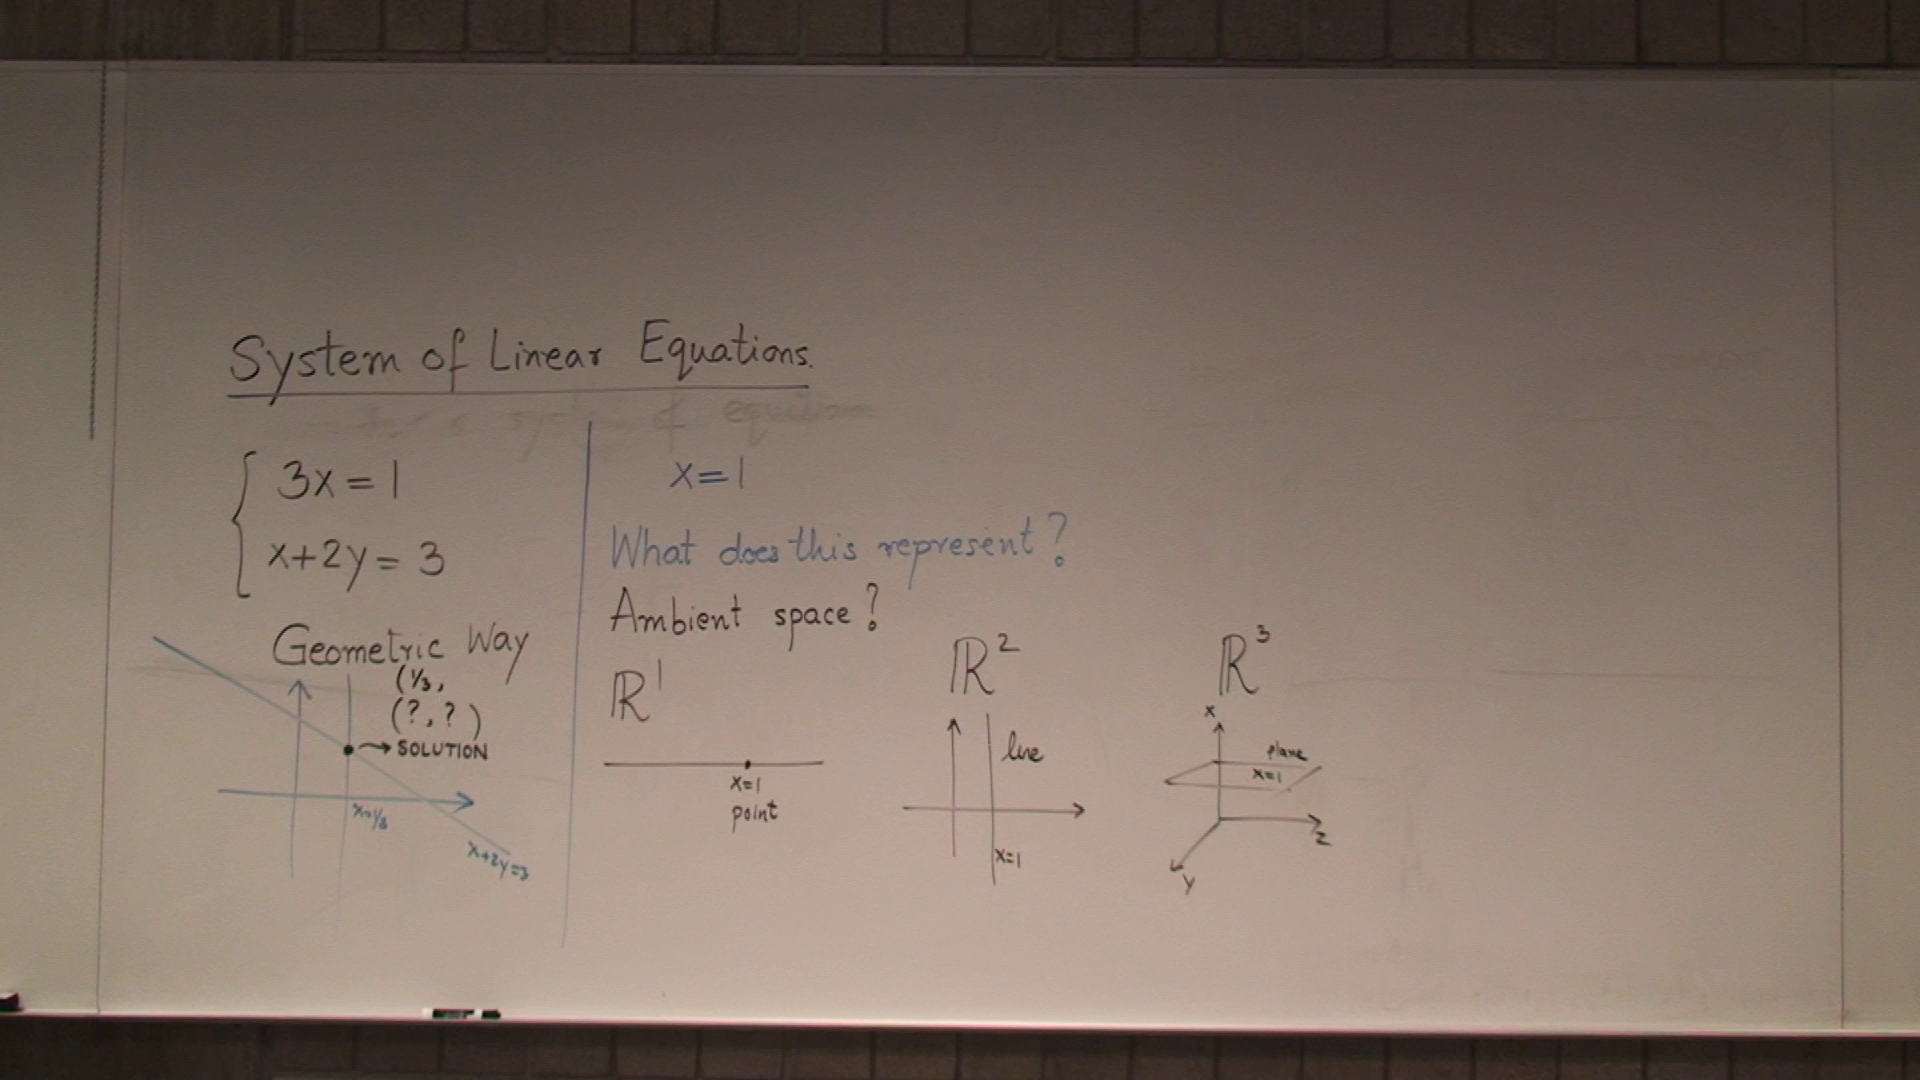 System of Linear Equations.
3x = 1
x+2y = 3
Geometric Way
(1/3,
(?, ?)
SOLUTION
x=1/3
x+2y=3
x=1
What does this represent?
Ambient space?
ℝ¹
x=1
point
ℝ²
line
x=1
ℝ³
x
plane
x=1
z
y